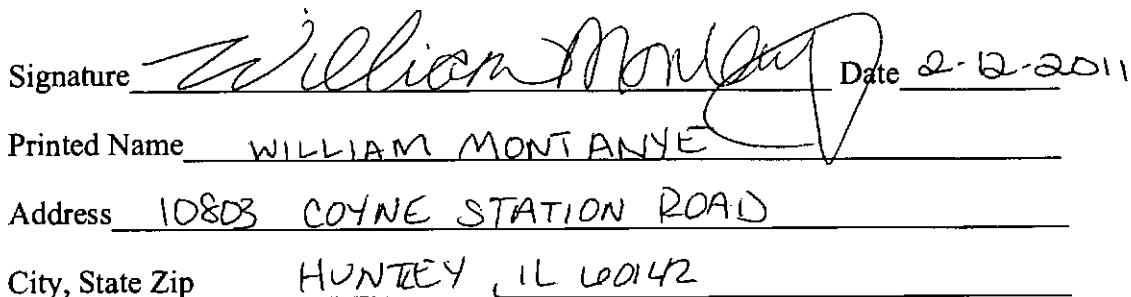 Signature William Montanye Date 2-12-2011
Printed Name WILLIAM MONTANYE
Address 10803 COYNE STATION ROAD
City, State Zip HUNTLEY, IL 60142